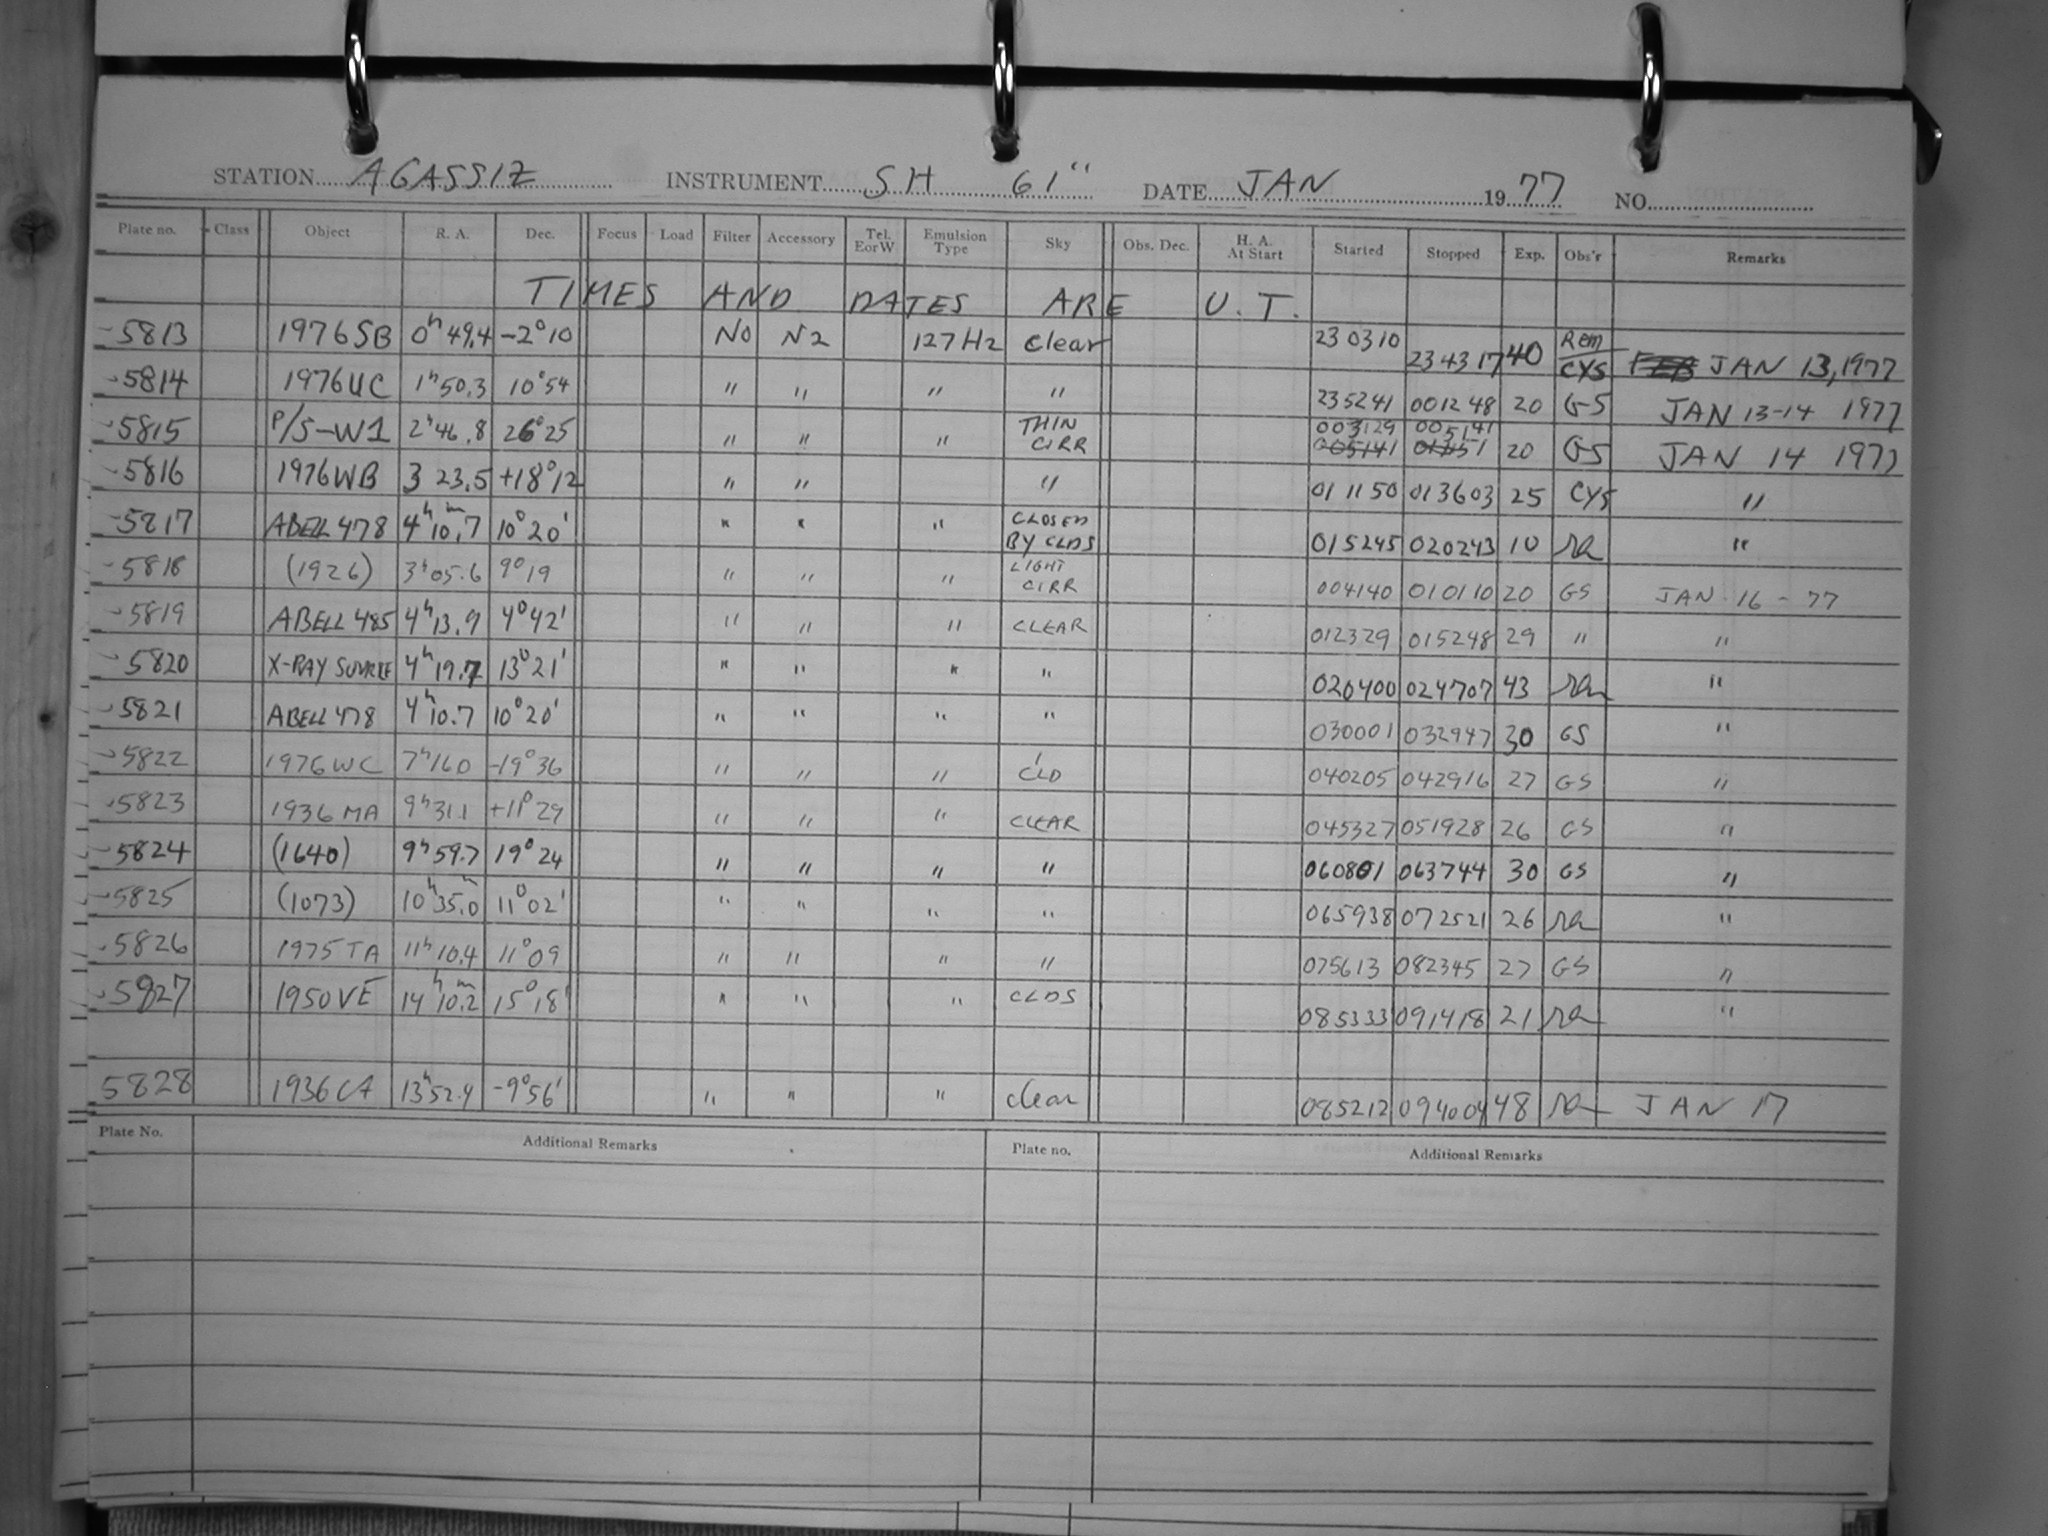 STATION AGASSIZ INSTRUMENT SH 61" DATE JAN 1977 NO.
Plate no. Class Object R. A. Dec. Focus Load Filter Accessory Tel. E or W Emulsion Type Sky Obs. Dec. H. A. At Start Started Stopped Exp. Obs'r Remarks
TIMES AND DATES ARE U.T.
5813 1976SB 0h 49.4 -2°10 No N2 127Hz clear 23 03 10 23 43 17 40 Rem/CYS JAN 13, 1977
5814 1976UC 1h 50.3 10°54 " " " " 235241 001248 20 GS JAN 13-14 1977
5815 P/S-W1 2h46.8 26°25 " " " THIN CIRR 003129 005141 005141 20 GS JAN 14 1977
5816 1976WB 3 23.5 +18°12 " " " 01 11 50 013603 25 CYS "
5817 ABELL 478 4h 10m.7 10°20' " " " CLOSED BY CLDS 015245 020243 10 ra "
5818 (1926) 3h05.6 9°19 " " " LIGHT CIRR 004140 010110 20 GS JAN 16 - 77
5819 ABELL 485 4h 13.9 4°42' " " " CLEAR 012329 015248 29 " "
5820 X-RAY SOURCE 4h 19.7 13°21' " " " " 020400 024707 43 ra "
5821 ABELL 478 4h 10.7 10°20' " " " " 030001 032947 30 GS "
5822 1976WC 7h160 -19°36 " " " CLD 040205 042916 27 GS "
5823 1936 MA 9h311 +11°29 " " " CLEAR 045327 051928 26 GS "
5824 (1640) 9h59.7 19°24 " " " " 060801 063744 30 GS "
5825 (1073) 10h35m.0 11°02' " " " " 065938 072521 26 ra "
5826 1975 TA 11h 10.4 11°09 " " " " 075613 082345 27 GS "
5827 1950VE 14h 10m.2 15°18' " " " CLDS 085333 091418 21 ra "
5828 1936 CA 13h52.4 -9°56' " " " clear 085212 094004 48 ra JAN 17
Plate No. Additional Remarks Plate no. Additional Remarks